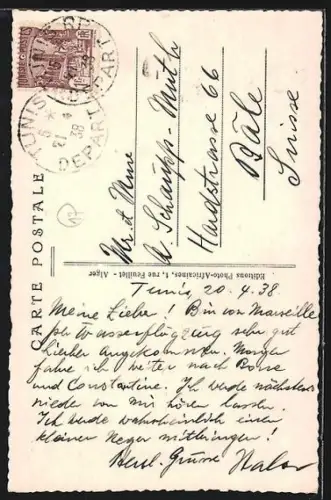 TUNIS DEPART
21 4 38
CARTE POSTALE
Mr et Mme
A. Schaupp-Muth
Hardstrasse 66
Bâle
Suisse
Editions Photo-Africaines, 1, rue Feuillet - Alger
Tunis, 20.4.38
Meine Lieben! Bin von Marseille
per Wasserflugzeug sehr gut
hier angekommen. Morgen
fahre ich weiter nach Bone
und Constantine. Ich werde nächstens
wieder von mir hören lassen.
Ich werde wahrscheinlich einen
kleinen Neger mitbringen!
Herzl. Grüsse